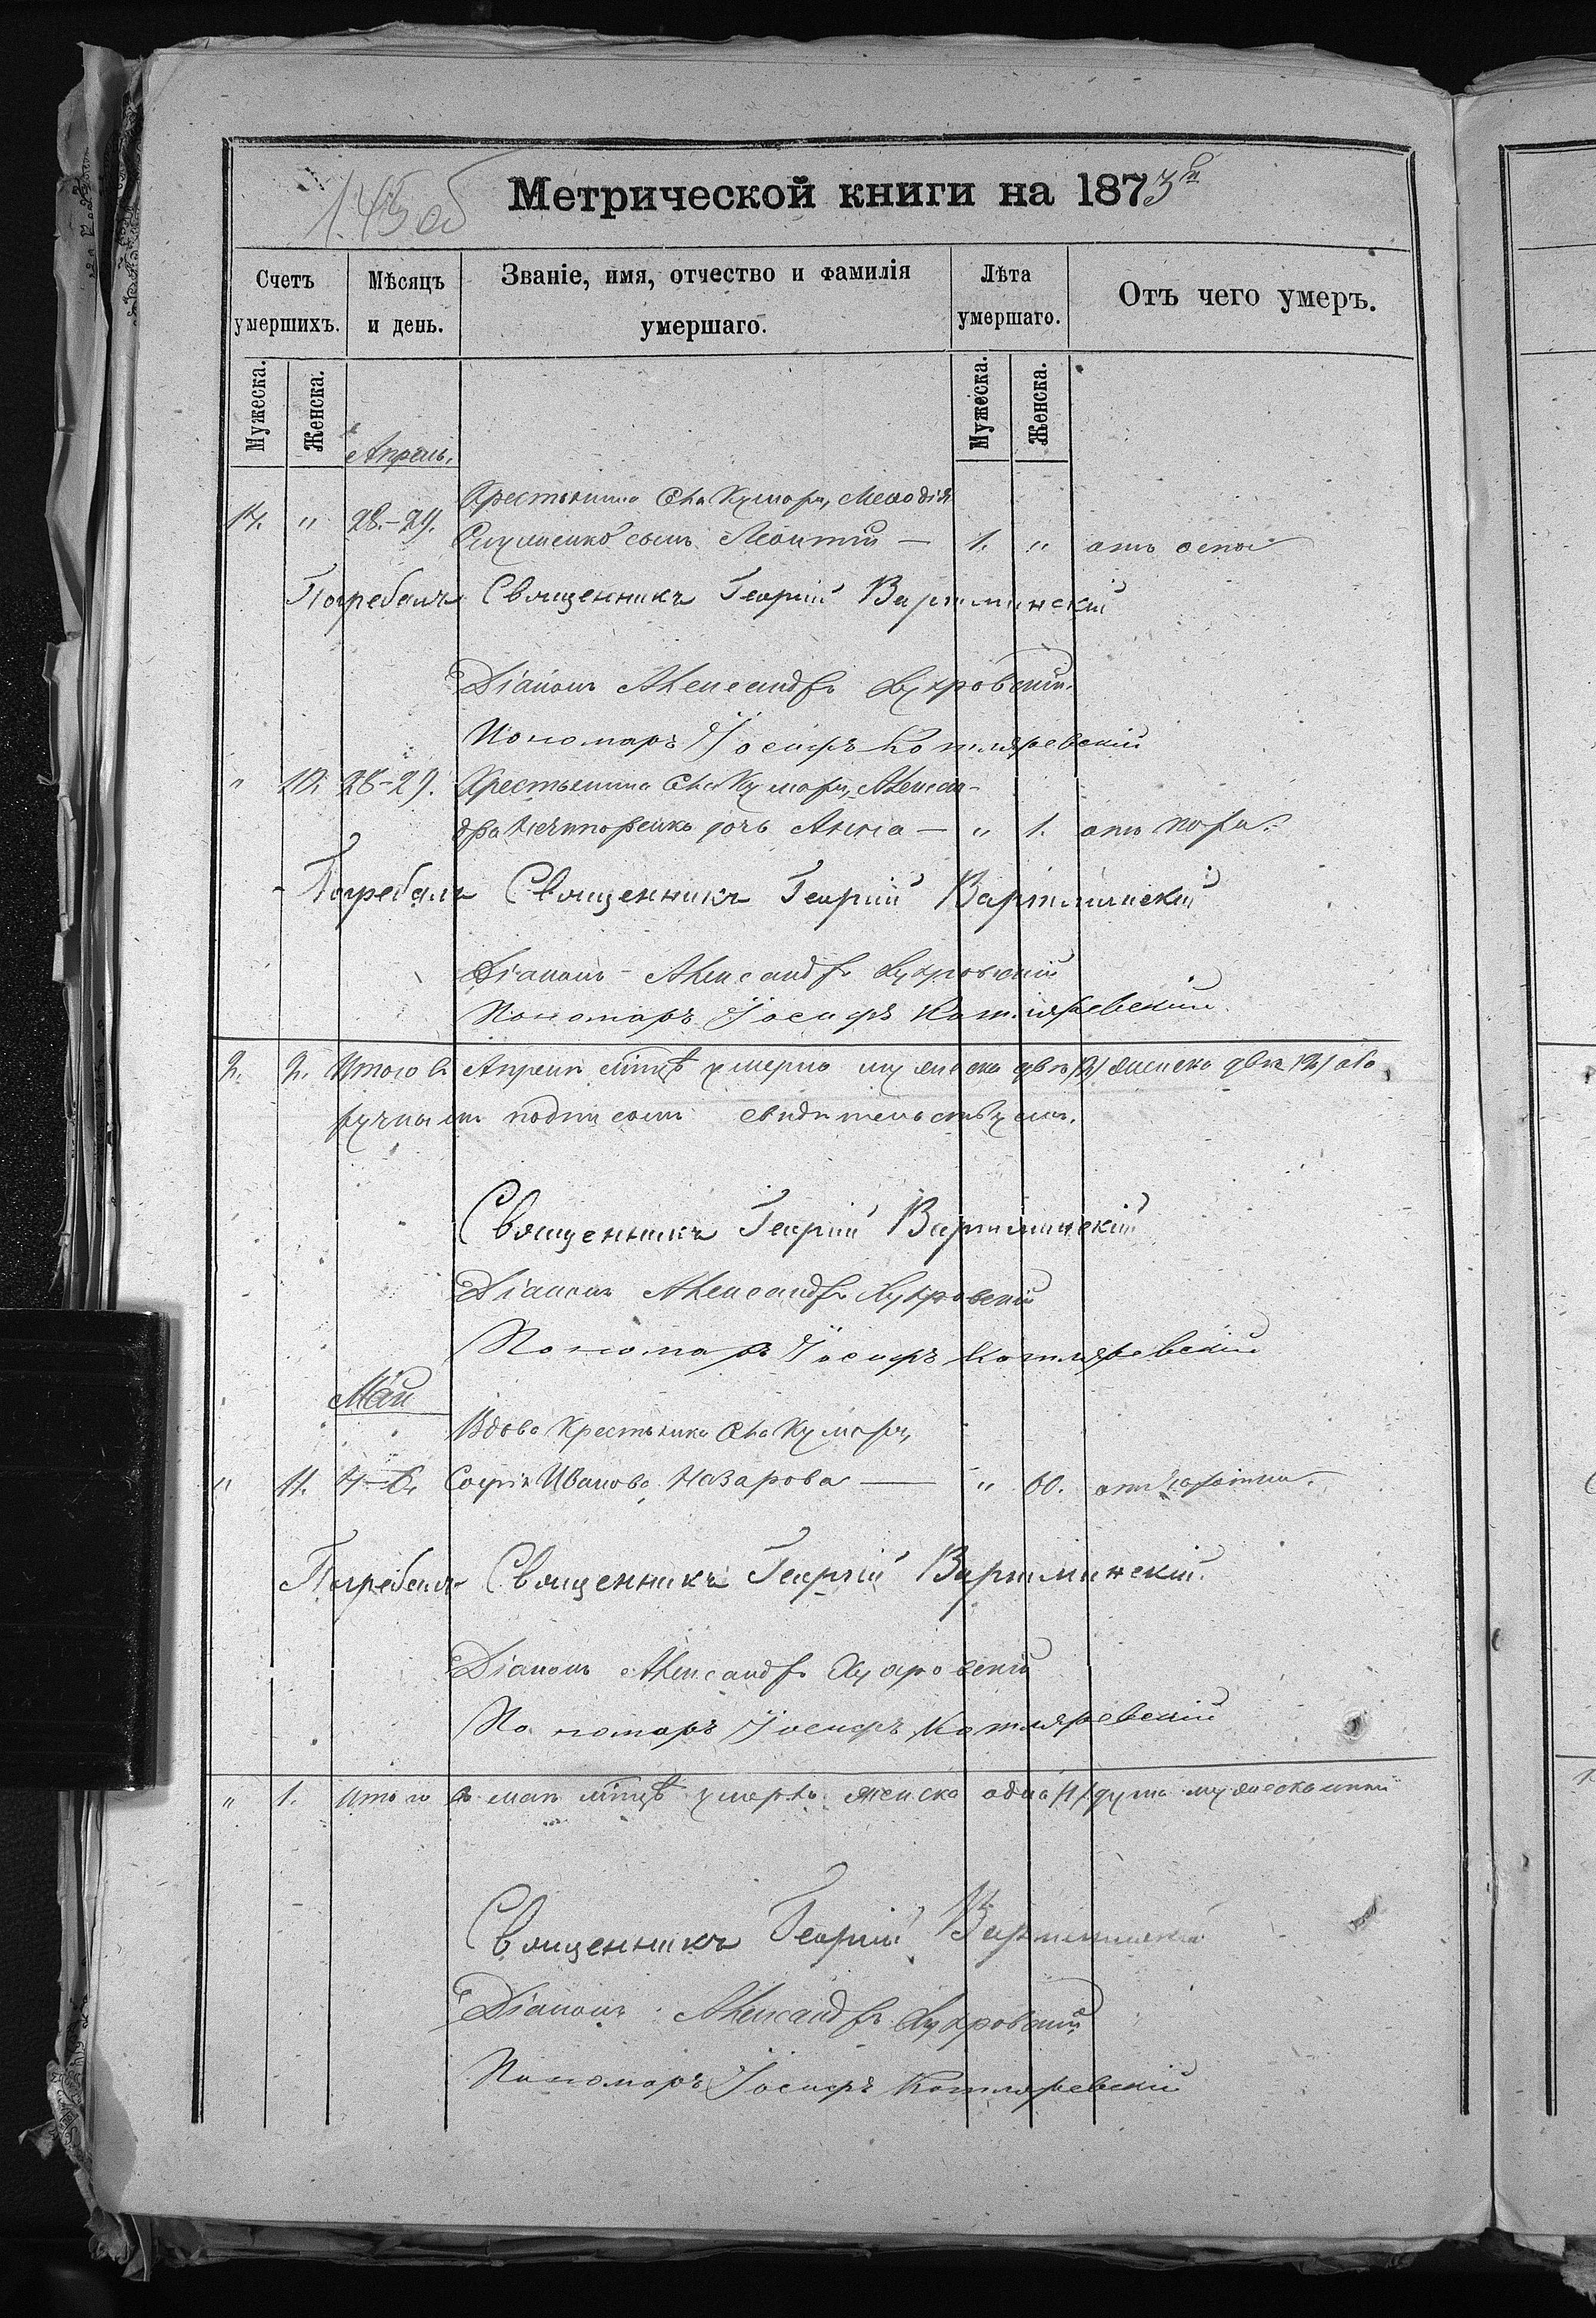 145 об
Метрической книги на 1873
Счетъ умершихъ.
Мѣсяцъ и день.
Званіе, имя, отчество и фамилія умершаго.
Лѣта умершаго.
Отъ чего умеръ.
Мужеска. Женска. Мужеска. Женска.
Апрель.
Крестьянина Кумары, Меѳодія
14. " 28.-29. сынъ Леонтій — 1. " отъ оспы
Погребалъ Священникъ Георгій Вартминскій
Діаконъ Александръ
Пономаръ Іосифъ Котляревскій
" 10. 28-29. Крестьянина Кумары, Алексан-
дра Нечипоренка дочь Анна — " 1. отъ кора.
Погребалъ Священникъ Георгій Вартминскій
Діаконъ Александръ
Пономаръ Іосифъ Котляревскій
2. 2. Итого въ Апрелѣ мцѣ умерло мужеска два /2/ женска двѣ /2/
ручнымъ подписомъ свидѣтельствуемъ.
Священникъ Георгій Вартминскій
Діаконъ Александръ
Пономаръ Іосифъ Котляревскій
Май
Вдова крестьянка Кумары,
" 11. 4-6. Софія Иванова Назарова — " 60. отъ
Погребалъ Священникъ Георгій Вартминскій.
Діаконъ Александръ
Пономаръ Іосифъ Котляревскій
" 1. Итого въ маи мцѣ умерло женска одна /1/ душа мужеска
Священникъ Георгій Вартминскій
Діаконъ Александръ
Пономаръ Іосифъ Котляревскій